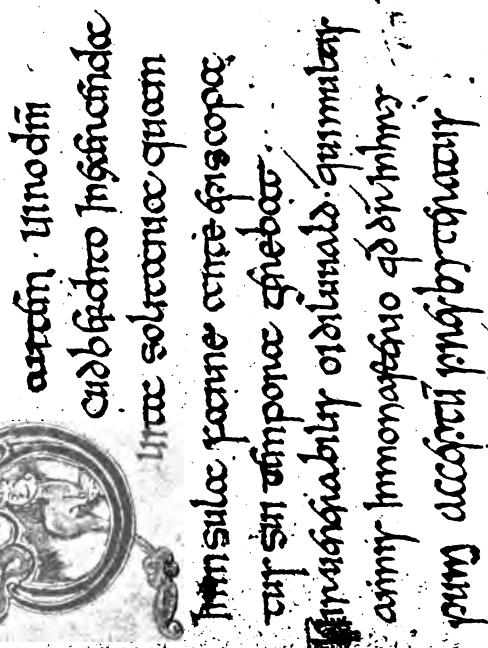 autem · uirodñi
cudbercto inexercenda
uita solitaria quam
ininsula farne ante episcopa
tus sui tempora gerebat
uiruenerabilis oidiluuald · quimultis
annis inmonasterio qd dr inhry
pum acceptū presbyteratus